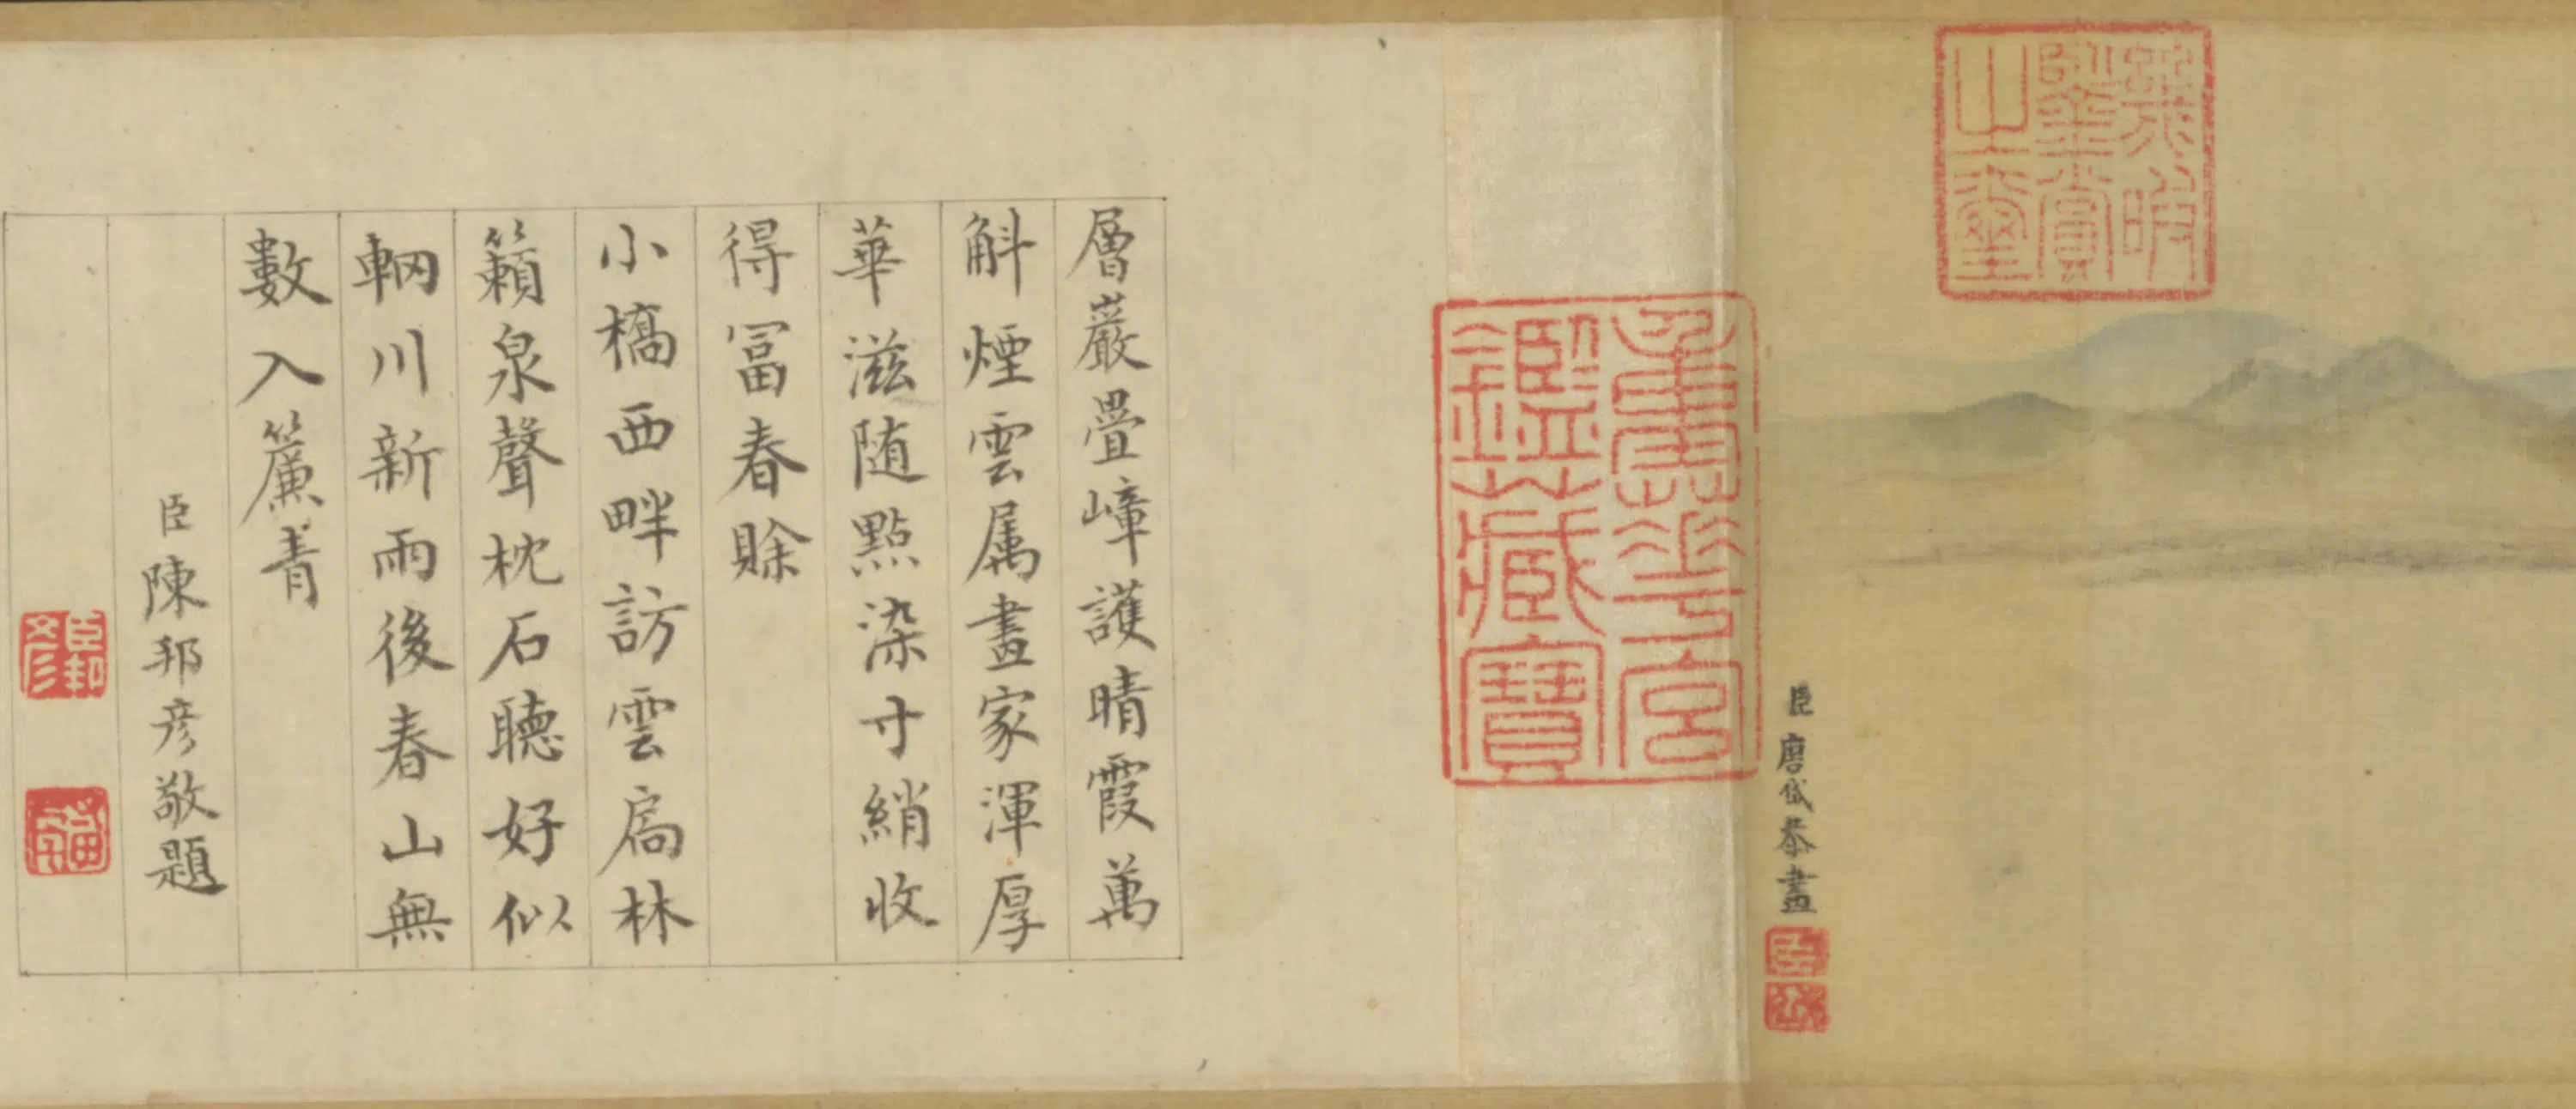 鑒賞
之璽
臣唐岱恭畫
臣
岱
重華宮
鑑藏寶
層巖疊嶂護晴霞萬
斛煙雲属畫家渾厚
華滋随點染寸綃收
得冨春賒
小橋西畔訪雲扃林
籟泉聲枕石聽好似
輞川新雨後春山無
數入簾青
臣陳邦彥敬題
臣邦
彥